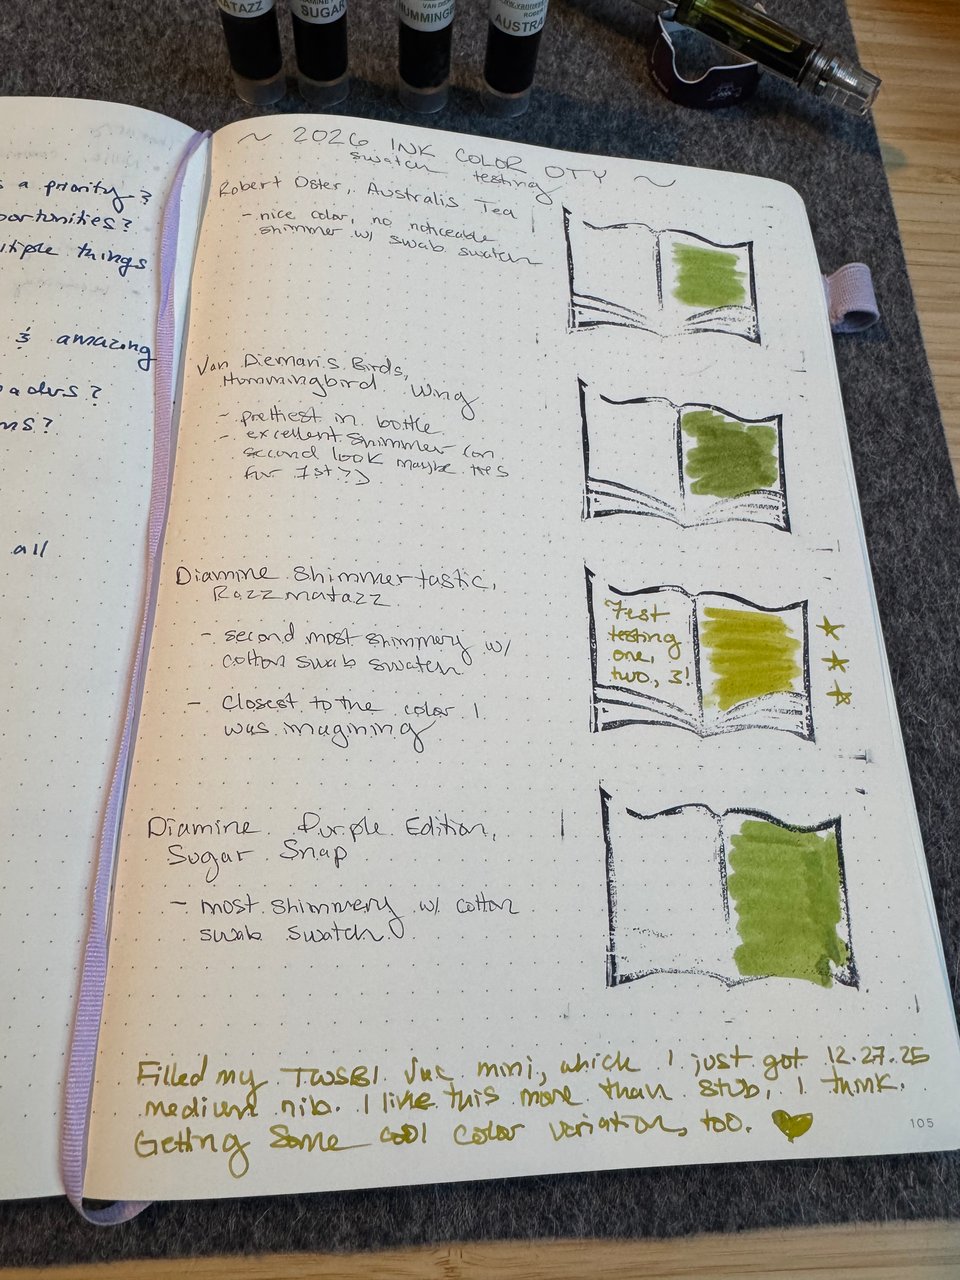 RATAZZ
SUGAR
HUMMING
AUSTRA
s a priority?
portunities?
ltiple things
& amazing
all
~ 2026 INK COLOR OTY ~
swatch testing
Robert Oster, Australis Tea
- nice color, no noticeable
shimmer w/ swab swatch
Van Dieman's Birds,
Hummingbird Wing
- prettiest in bottle
- excellent shimmer (on
second look maybe ties
for 1st?)
Diamine Shimmertastic,
Razzmatazz
- second most shimmery w/
cotton swab swatch
- Closest to the color I
was imagining
Test
testing
one,
two, 3!
Diamine Purple Edition,
Sugar Snap
- most shimmery w/ cotton
swab swatch
Filled my TWSBI Vac mini, which I just got 12.27.25
medium nib. I like this more than stub, I think.
Getting some cool color variation, too.
105